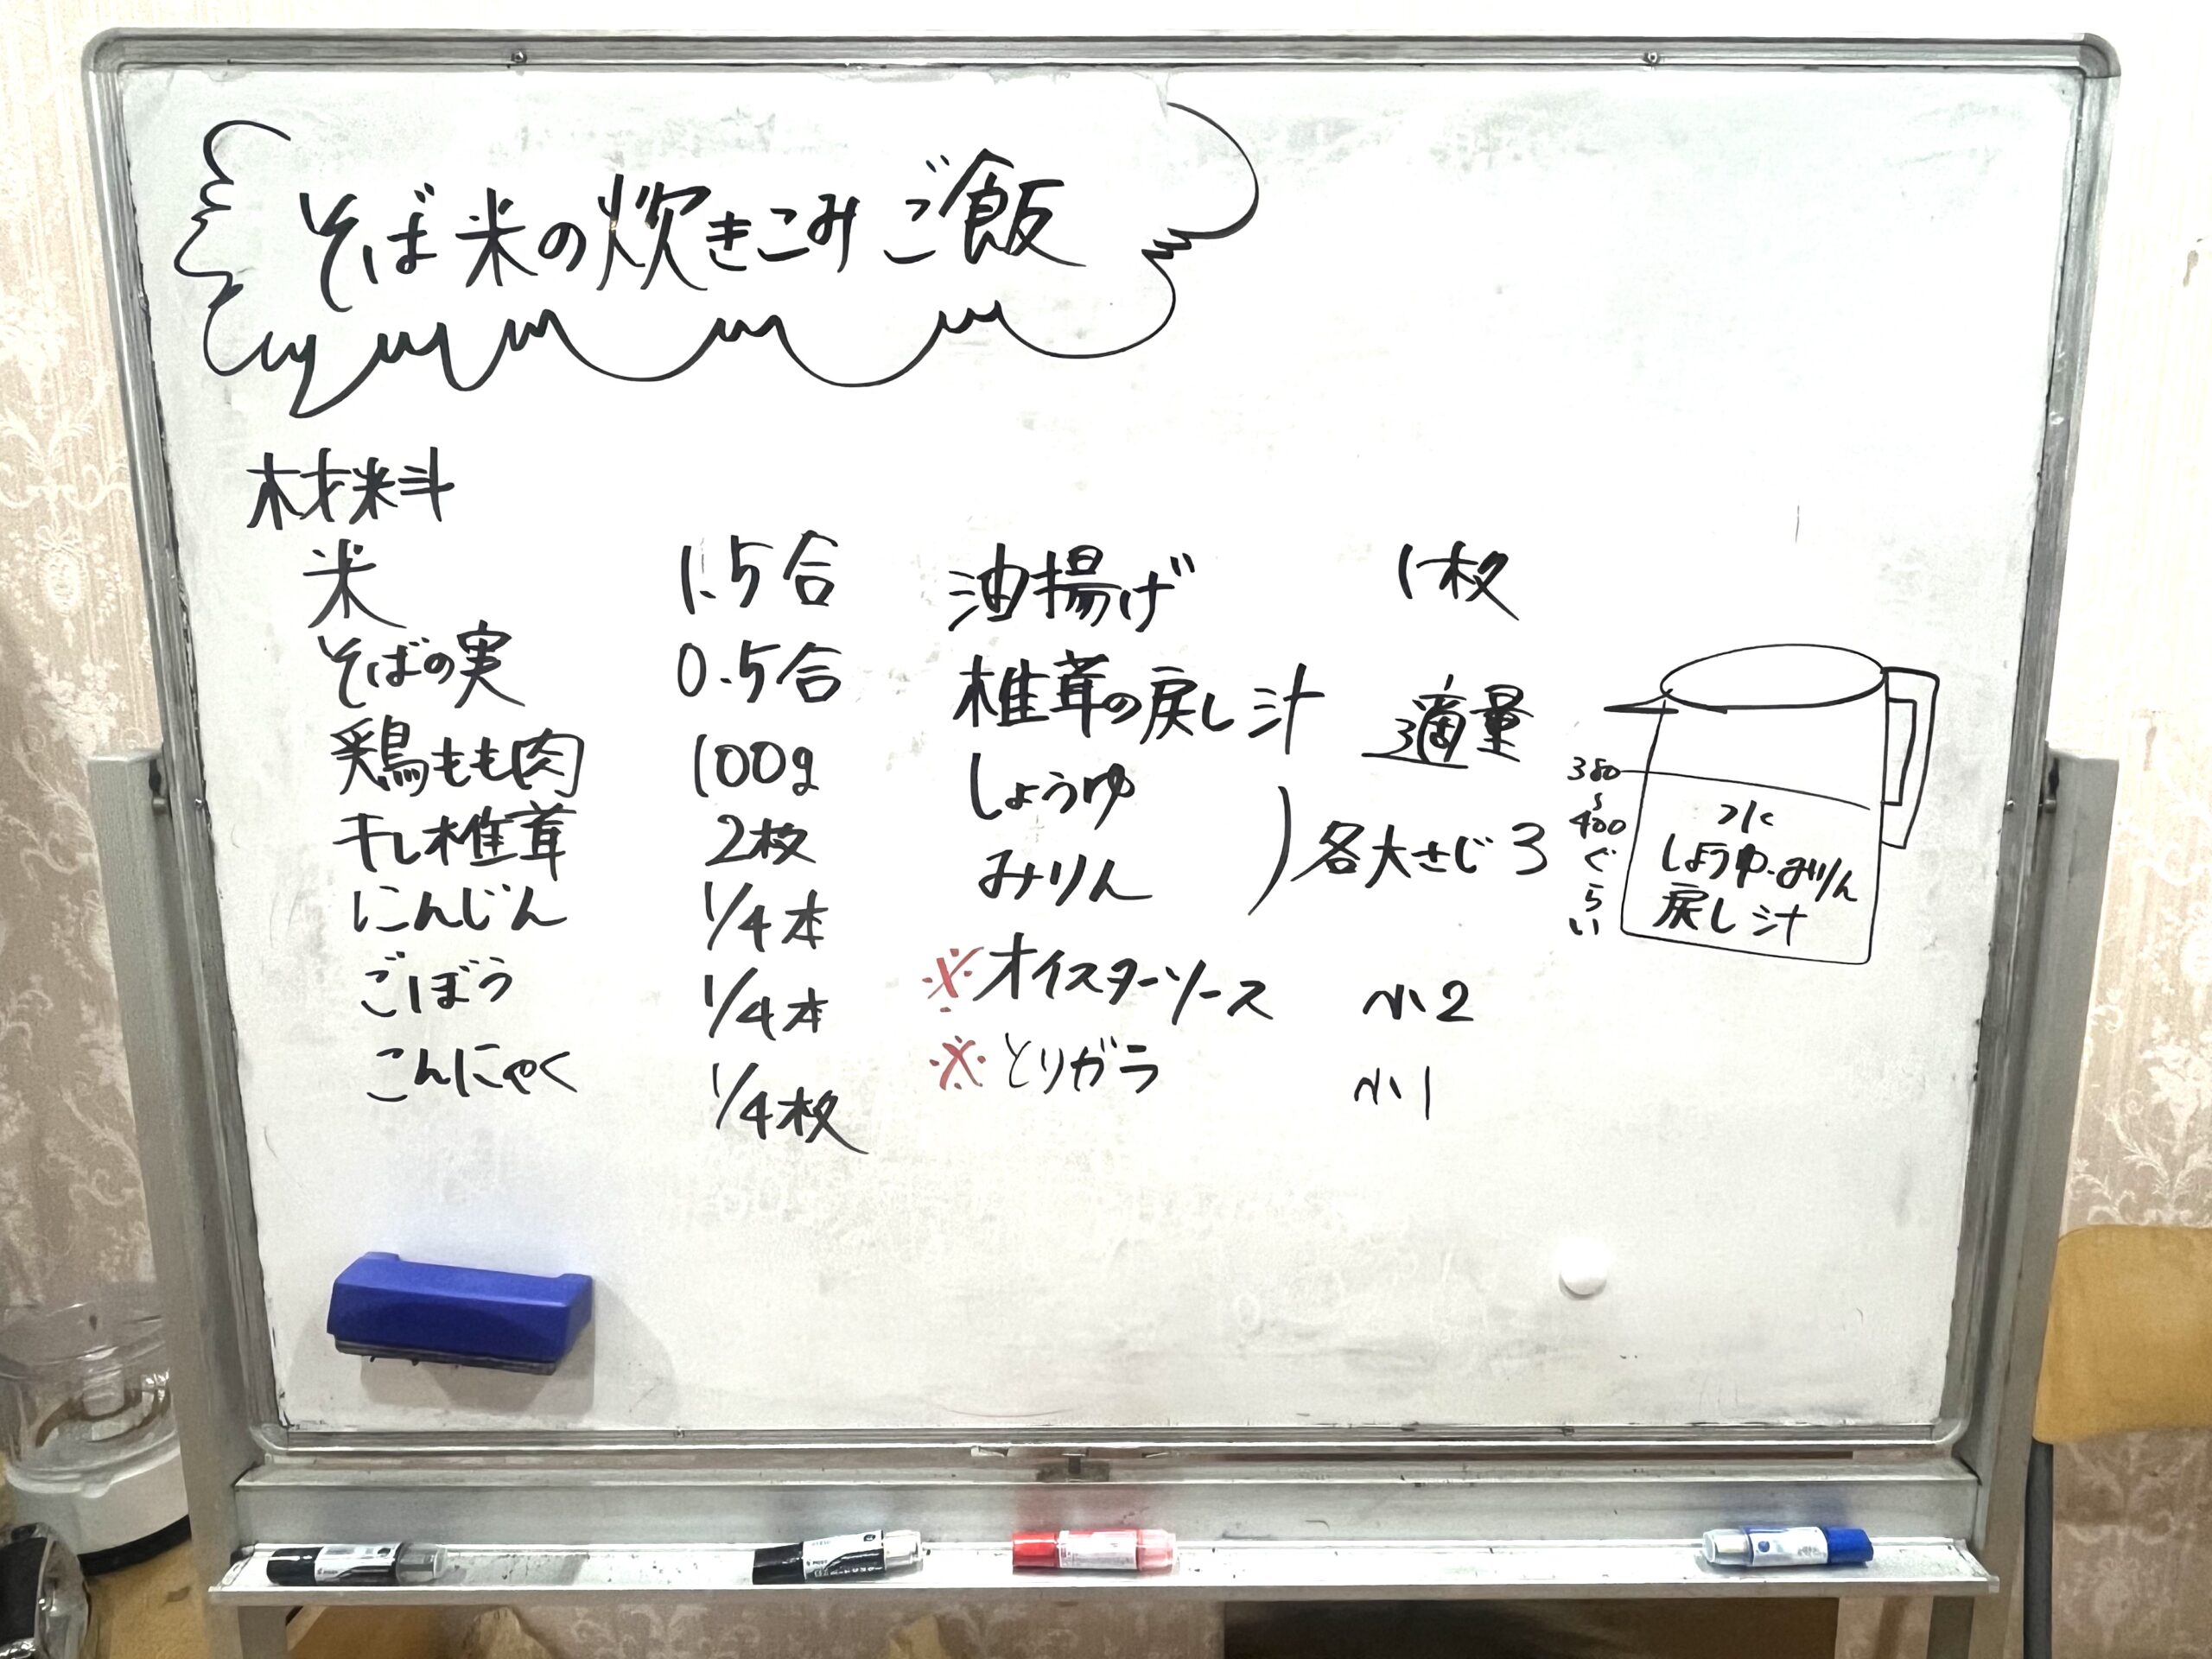 そば米の炊きこみご飯
材料
米 1.5合
そばの実 0.5合
鶏もも肉 100g
干し椎茸 2枚
にんじん 1/4本
ごぼう 1/4本
こんにゃく 1/4枚
油揚げ 1枚
椎茸の戻し汁 適量
しょうゆ
みりん
)各大さじ3
※オイスターソース 小2
※とりガラ 小1
380
〜
400
ぐらい
水
しょうゆ・みりん
戻し汁